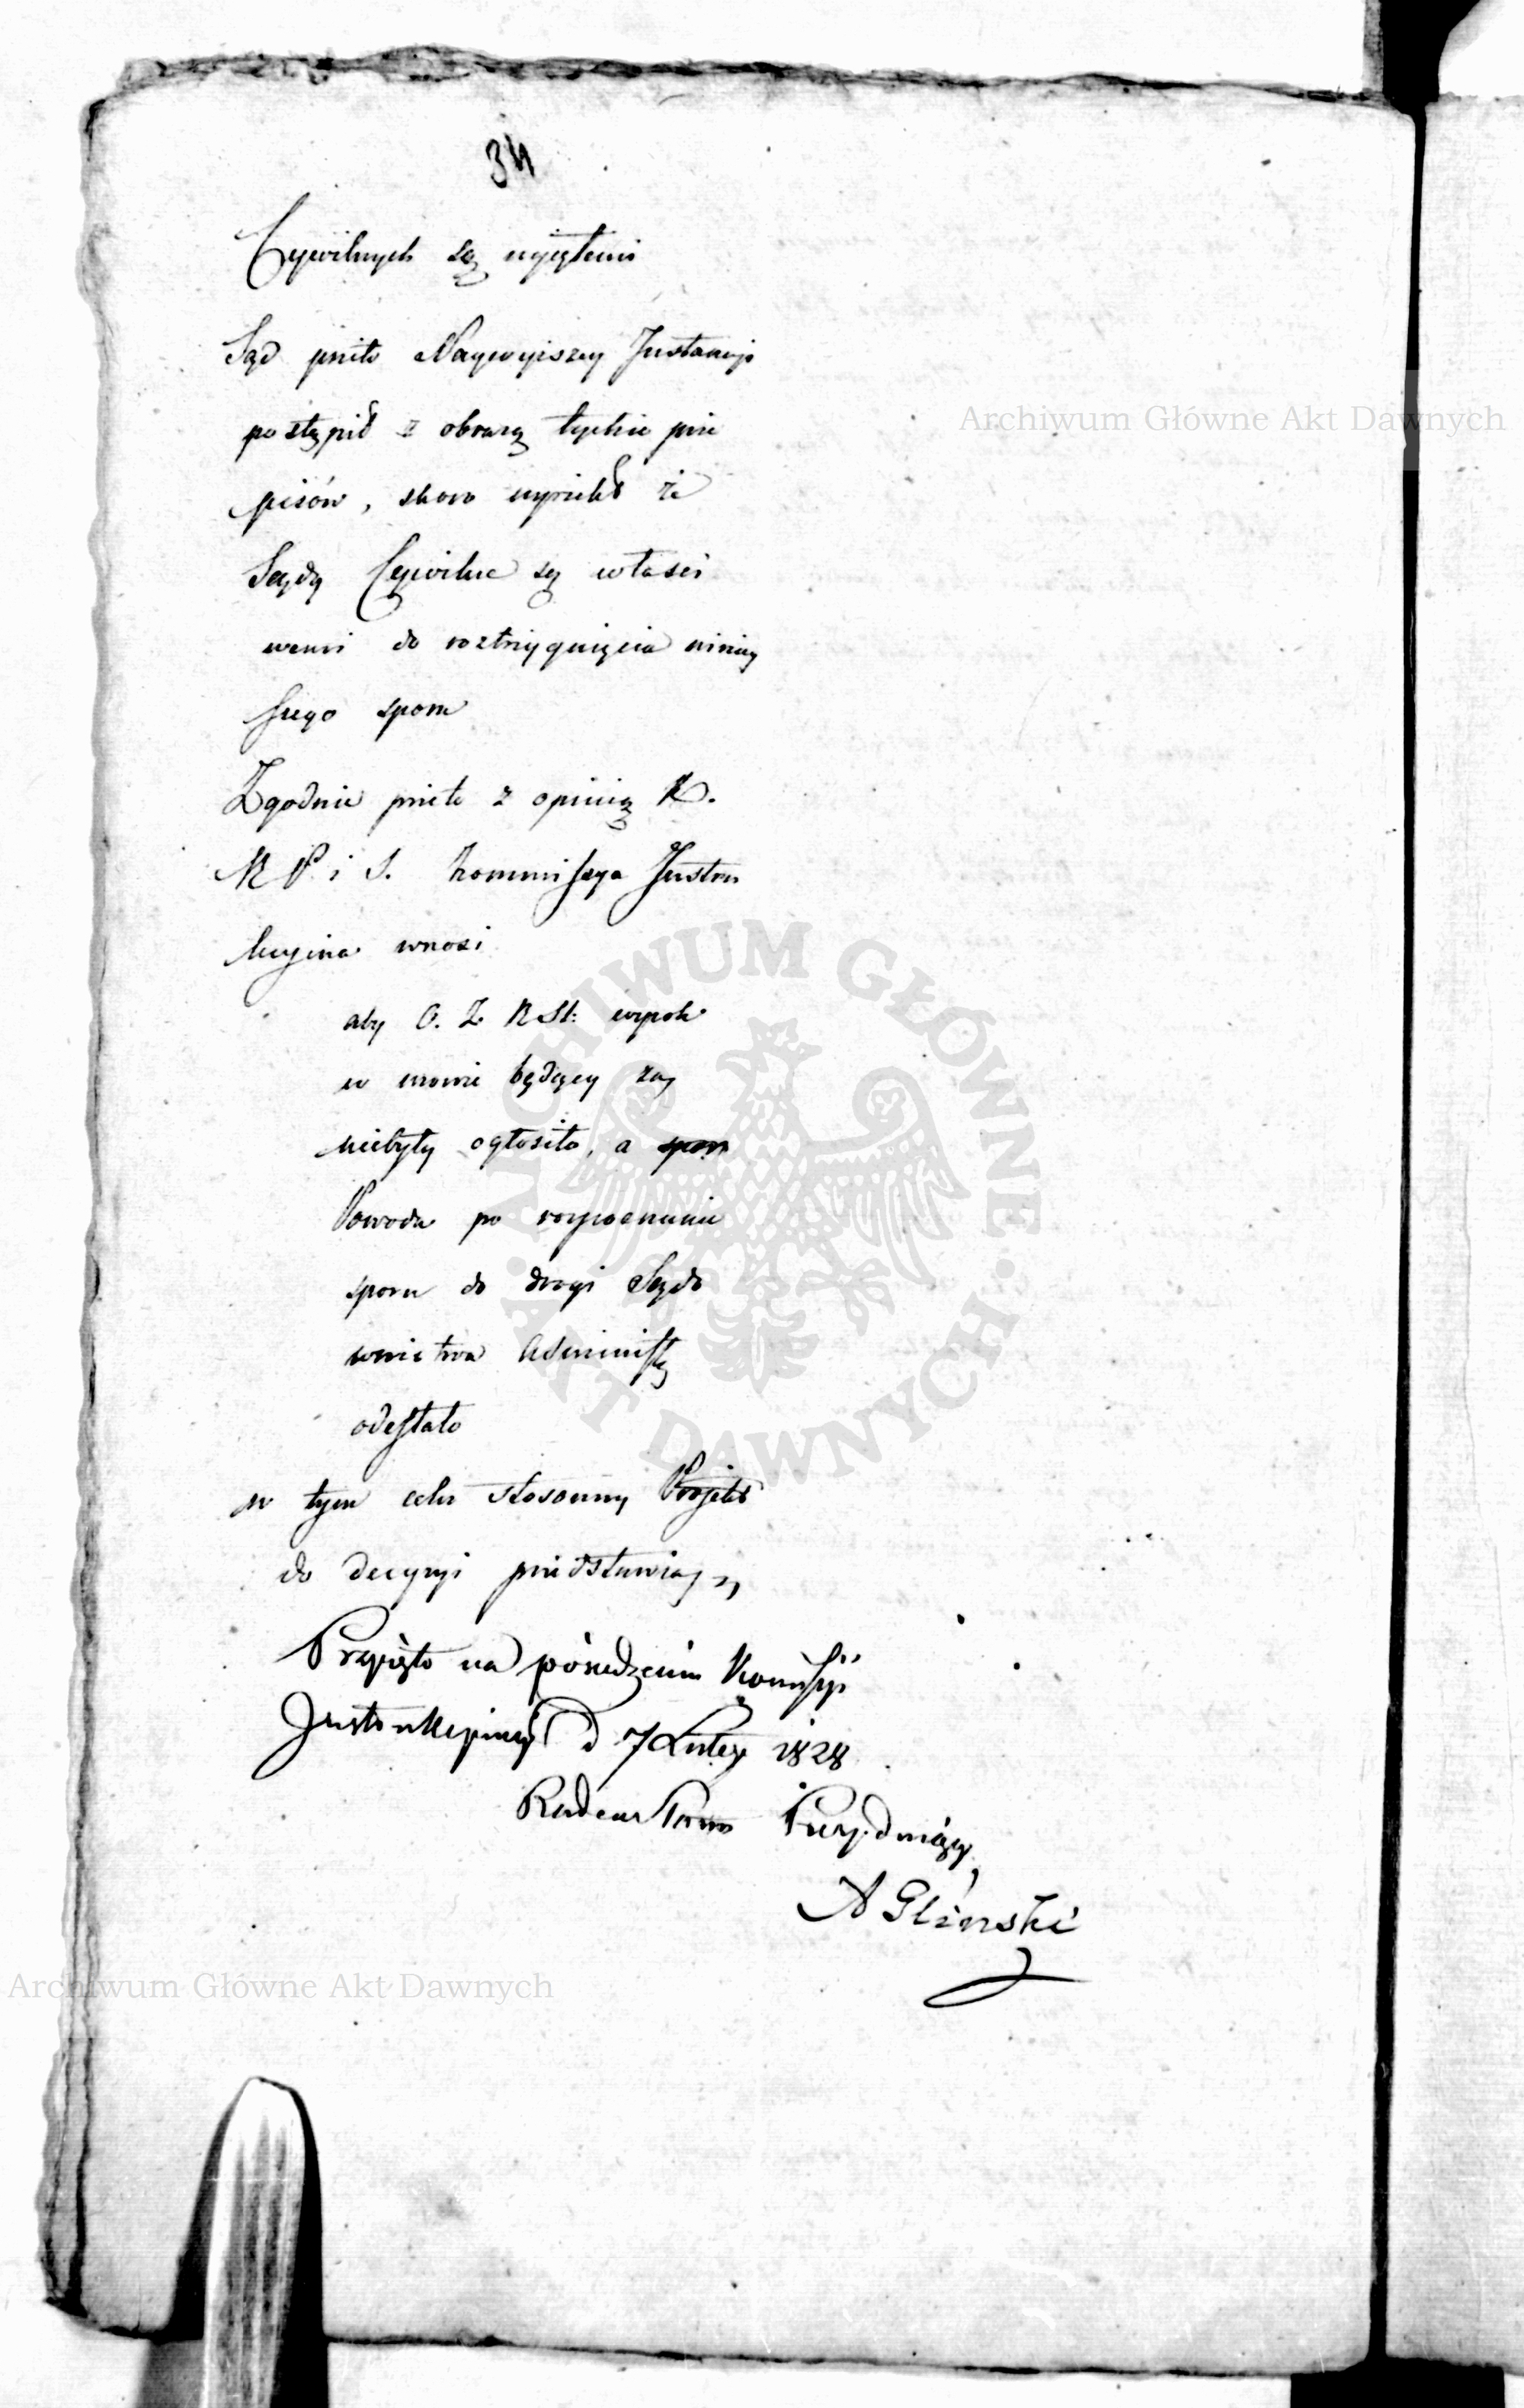 34
Cywilnych są wyjętemi
Sąd przeto Naywyższey Instancyi
postąpił z obrazą tychże prze
pisów, skoro wyrzekł że
Sądy Cywilne są właści
wemi do roztrzygnięcia niniey
szego sporu
Zgodnie przeto z opinią K.
R P. i S. Kommissya Instru
kcyina wnosi
aby O. Z. R St: wyrok
w mowie będący za
niebyły ogłosiło, a
Powoda po rozpoznanie
sporu do drogi Sądo
wnictwa Administ:
odesłało
w tym celu stosowny Projekt
do decyzyi przedstawiając
Przyięto na posiedzeniu Komissyi
Instrukcyiney d 7 Lutego 1828
Radca Stanu Prezyduiący
A Glinski
Archiwum Główne Akt Dawnych
ARCHIWUM GŁÓWNE AKT DAWNYCH
Archiwum Główne Akt Dawnych